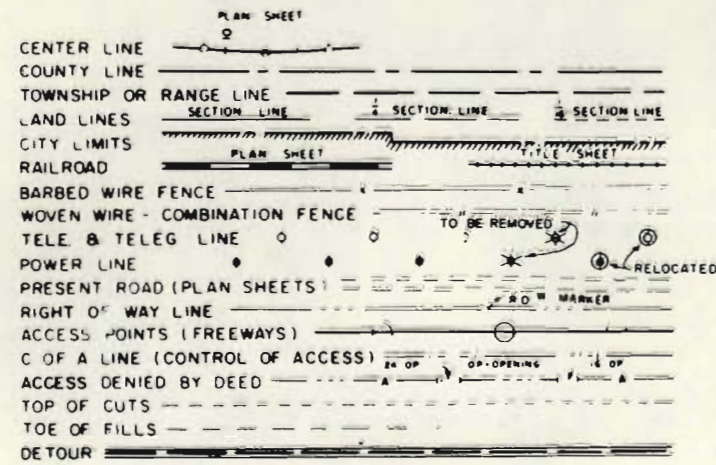 PLAN SHEET
CENTER LINE
COUNTY LINE
TOWNSHIP OR RANGE LINE
LAND LINES SECTION LINE 1/4 SECTION LINE SECTION LINE
CITY LIMITS
RAILROAD PLAN SHEET TITLE SHEET
BARBED WIRE FENCE
WOVEN WIRE - COMBINATION FENCE
TELE. & TELEG LINE TO BE REMOVED
POWER LINE RELOCATED
PRESENT ROAD (PLAN SHEETS)
RIGHT OF WAY LINE MARKER
ACCESS POINTS (FREEWAYS)
C OF A LINE (CONTROL OF ACCESS)
24 OP OP-OPENING 16 OP
ACCESS DENIED BY DEED A A
TOP OF CUTS
TOE OF FILLS
DETOUR